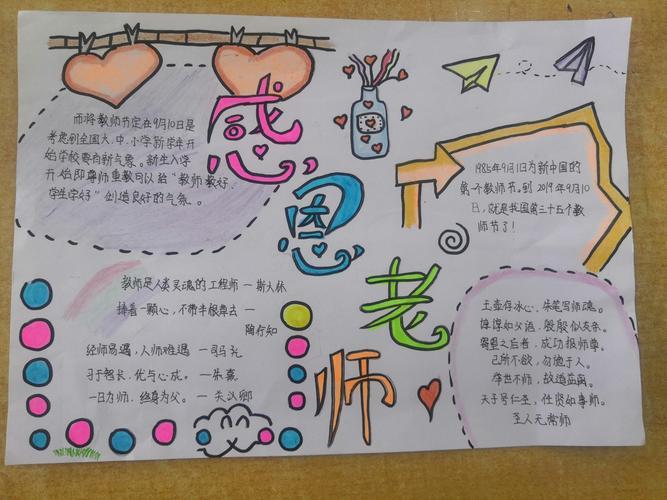 感恩老师
而将教师节定在9月10日是
考虑到全国大、中、小学新学年开
始学校要有新气象。新生入学
开始即尊师重教可以给“教师教好，
学生学好”创造良好的气氛。
1985年9月1日为新中国的
第一个教师节。到2019年9月10
日，就是我国第三十五个教
师节了！
教师是人类灵魂的工程师 — 斯大林
捧着一颗心，不带半根草去 —
陶行知
经师易遇，人师难遇 — 司马光
习于智长，优与心成。 — 朱熹
一日为师，终身为父。 — 关汉卿
玉壶存冰心，朱笔写师魂。
谆谆如父语，殷殷似友亲。
蜀望之后者，成功报师尊。
己所不欲，勿施于人。
举世不师，故道益离。
天子号仁圣，任贤如事师。
至人无常师